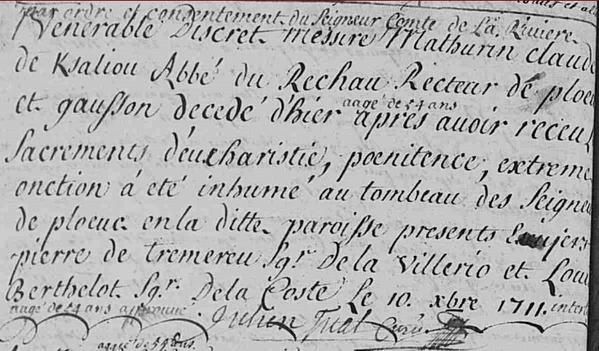 par ordre et consentement du Seigneur Comte de La Riviere
Venerable Discret messire Mathurin claude
de Ksaliou Abbé du Rechau Recteur de ploeu
et gausson decedé d'hier aagé de 54 ans apres avoir receu
Sacrements d'eucharistie, poenitence, extreme
onction á eté inhumé au tombeau des Seigne
de ploeuc en la ditte paroisse presents
pierre de tremereu Sgr De la Villerio et Loui
Berthelot Sgr De la Coste Le 10 xbre 1711 interl
aagé de 54 ans approuvé Julien
aagé de 54 ans